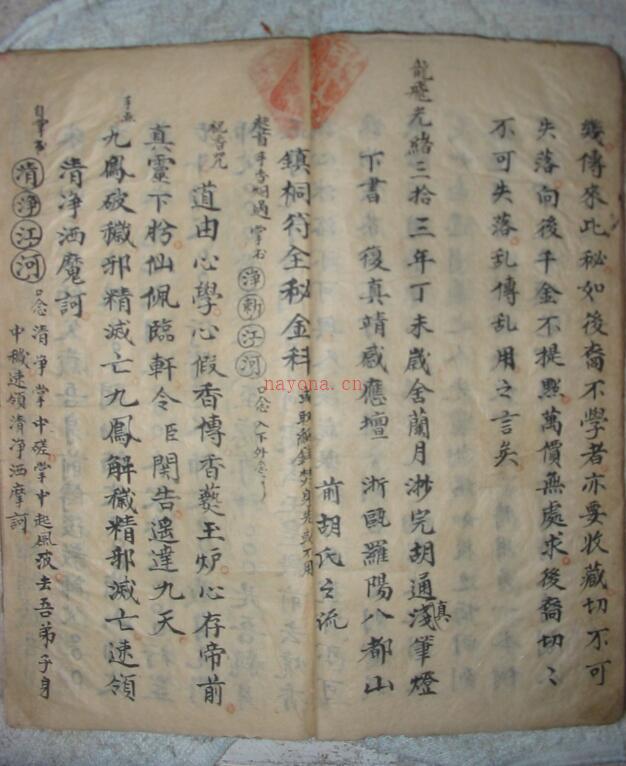 幾傳來此秘如後裔不學者亦要收藏切不可
失落向後千金不提㸃萬價無處求後裔切〻
不可失落乱傳乱用之言矣
龍飛光緒三拾三年丁未歲舍蘭月 淅完胡通淺真筆燈
下書 奏 復真靖感應壇 浙甌羅陽八都山
前胡氏之流
鎮桐符全秘金科
起首手香烟過掌書 淨新江河 口念
祝香咒
道由心學心假香傳香爇玉炉心存帝前
真靈下盻仙佩臨軒令臣関告遥達九天
九鳳破穢邪精滅亡九鳳解穢精邪滅亡速領
清净洒魔訶
清淨江河 口念清淨掌中磋掌中起風波去吾弟子身
中穢速領清淨洒摩訶
nayona.cn